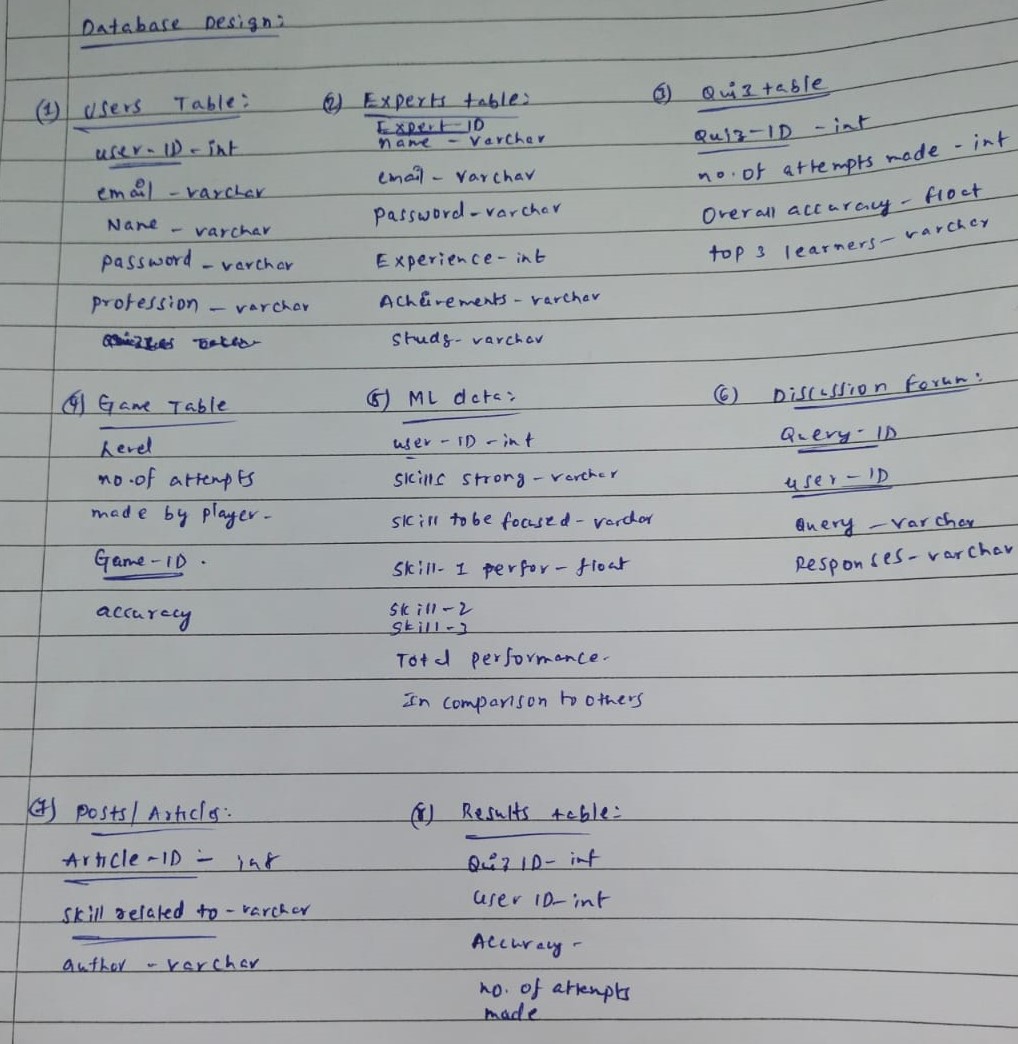 Database Design:
(1) Users Table:
user-ID - int
email - varchar
Name - varchar
password - varchar
profession - varchar
(2) Experts table:
Expert-ID
name - varchar
email - varchar
password - varchar
Experience - int
Acheirements - varchar
Study - varchar
(3) Quiz table
Quiz-ID - int
no. of attempts made - int
Overall accuracy - float
top 3 learners - varcher
(4) Game Table
Level
no. of attempts
made by player.
Game-ID.
accuracy
(5) ML data:
user-ID - int
Skills strong - varcher
Skill to be focused - varchar
Skill-1 perfor - float
Skill-2
Skill-3
Total performance.
In comparison to others
(6) Discussion Forum:
Query-ID
user-ID
Query - varchar
Responses - varchar
(7) Posts/Articles:
Article-ID - int
Skill related to - varchar
author - varchar
(8) Results table:
Quiz ID - int
User ID - int
Accuracy -
no. of attempts
made